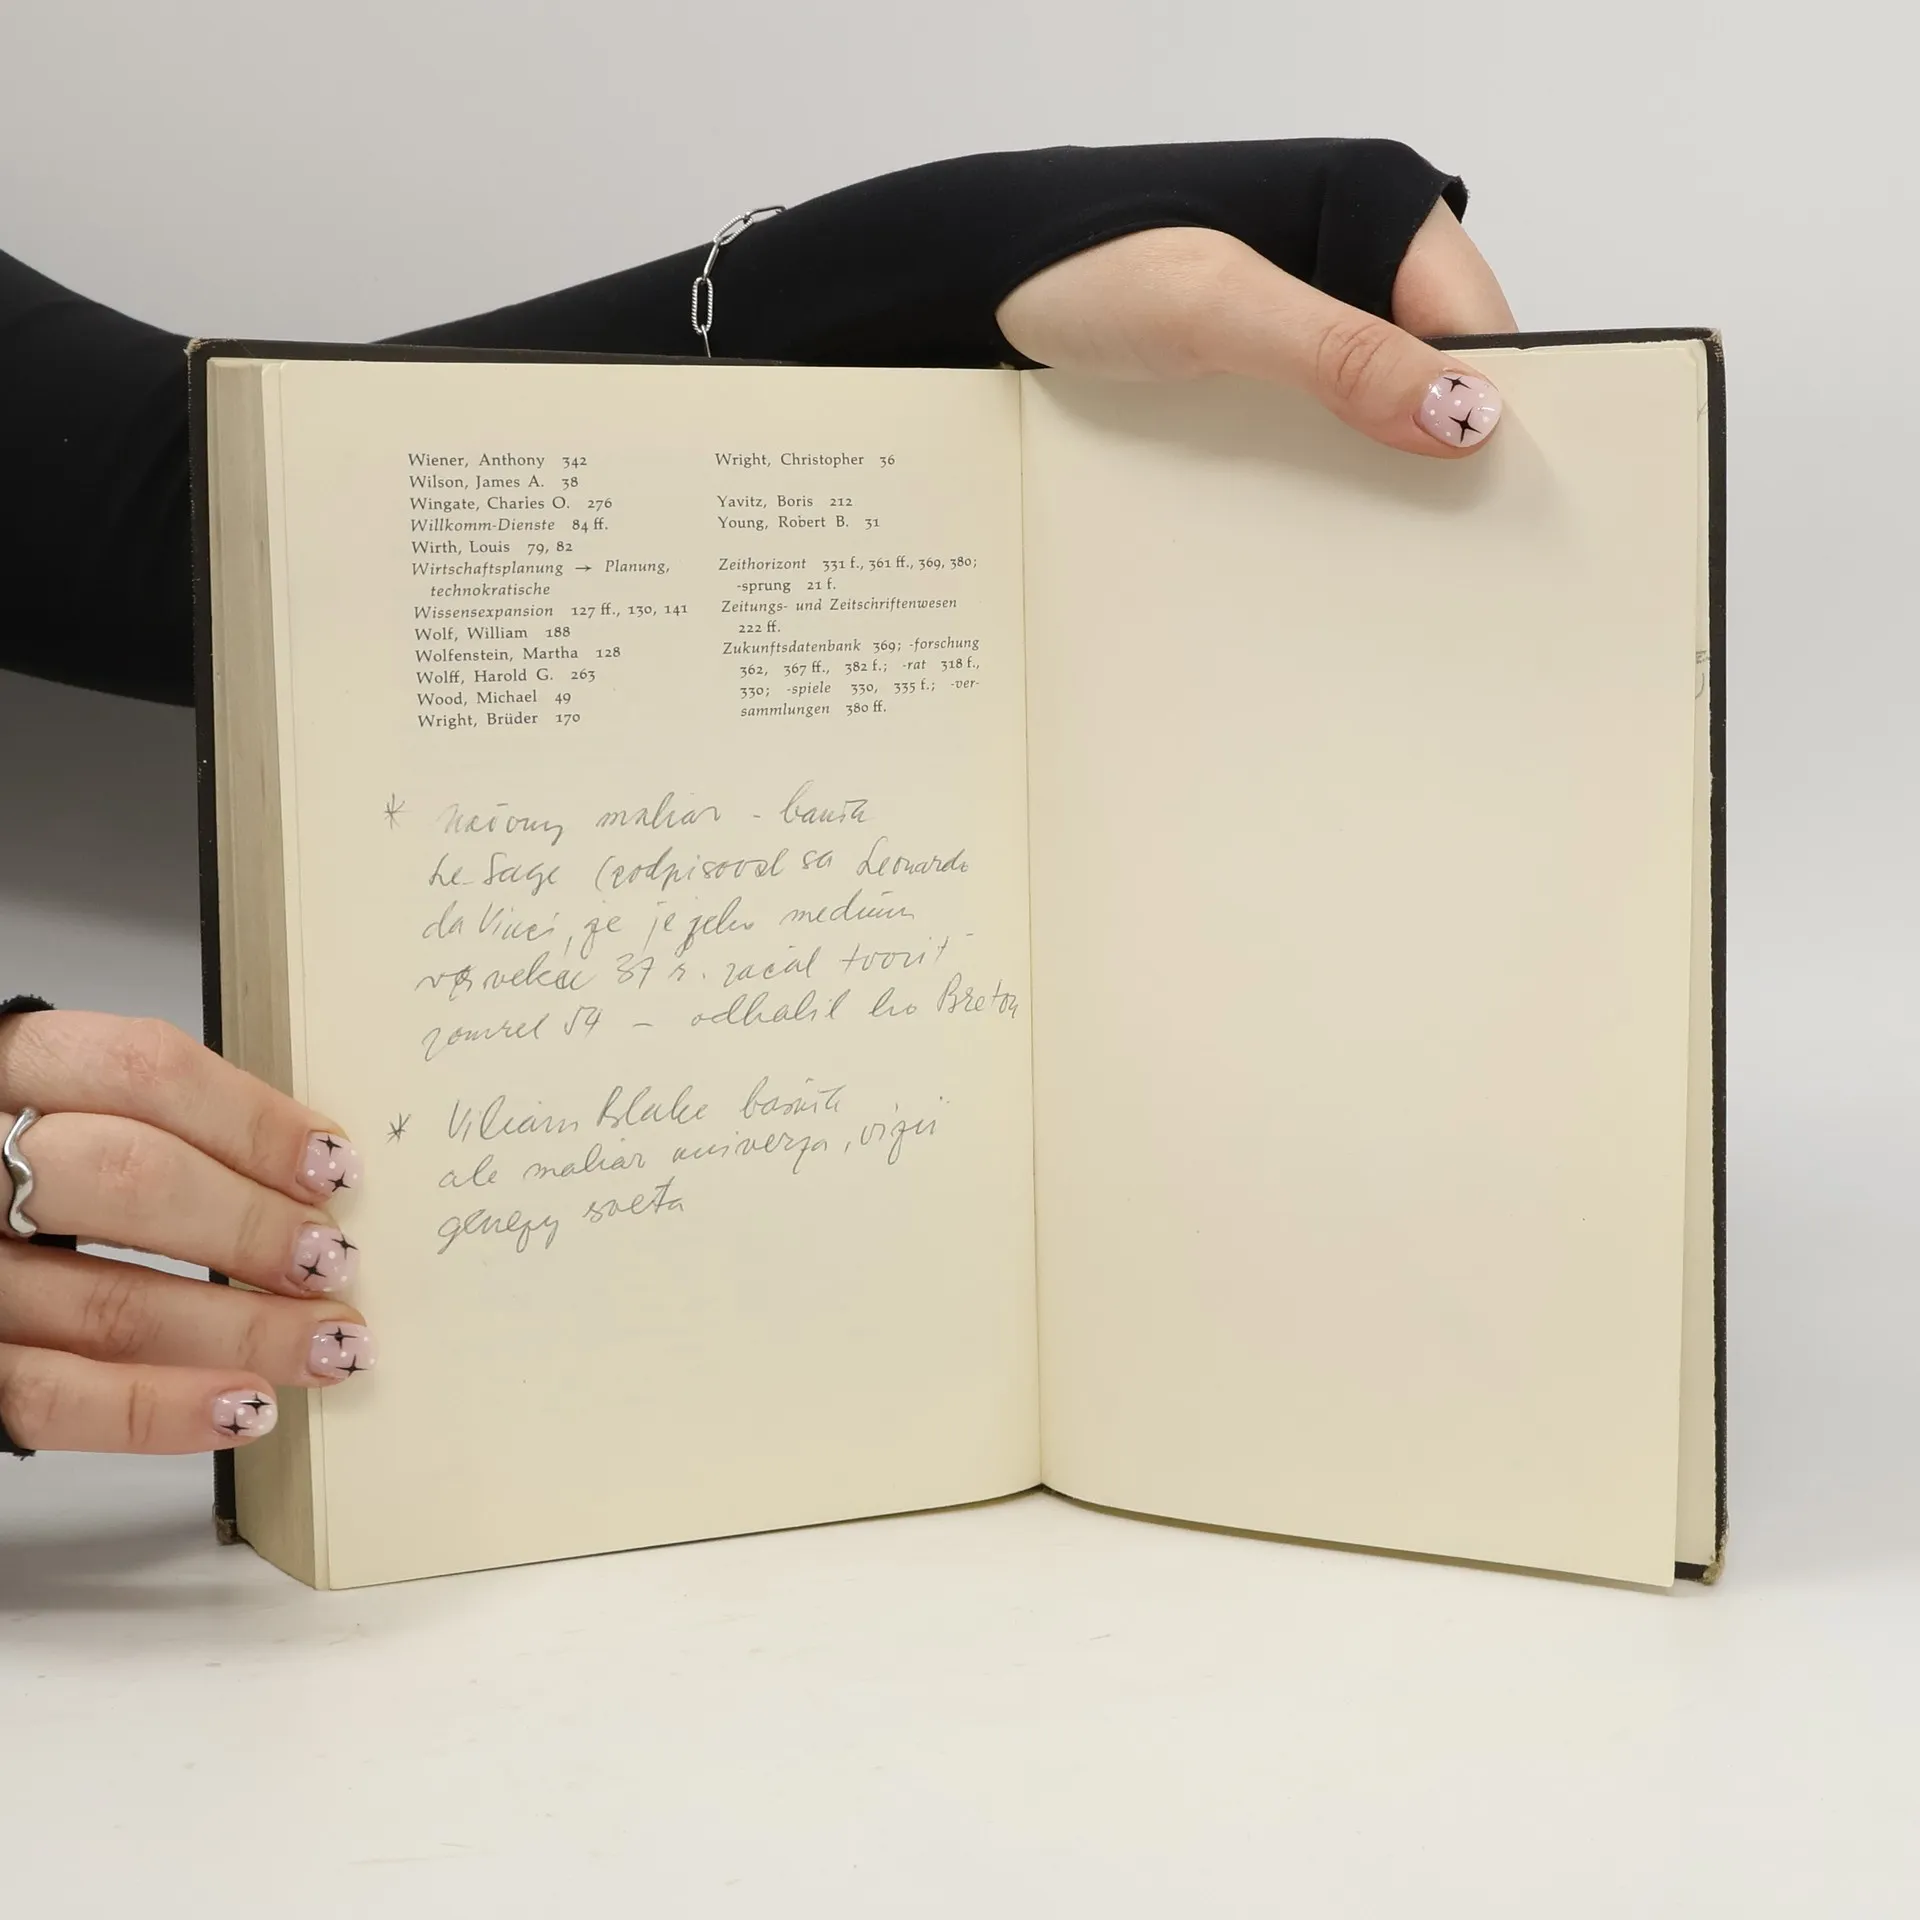 Wiener, Anthony 342
Wilson, James A. 38
Wingate, Charles O. 276
Willkomm-Dienste 84 ff.
Wirth, Louis 79, 82
Wirtschaftsplanung → Planung,
technokratische
Wissensexpansion 127 ff., 130, 141
Wolf, William 188
Wolfenstein, Martha 128
Wolff, Harold G. 263
Wood, Michael 49
Wright, Brüder 170
Wright, Christopher 36
Yavitz, Boris 212
Young, Robert B. 31
Zeithorizont 331 f., 361 ff., 369, 380;
-sprung 21 f.
Zeitungs- und Zeitschriftenwesen
222 ff.
Zukunftsdatenbank 369; -forschung
362, 367 ff., 382 f.; -rat 318 f.,
330; -spiele 330, 335 f.; -ver-
sammlungen 380 ff.
* maliar -
Le Sage (podpisoval sa Leonardo
da Vinci, že je jeho medium
37 r. začal tvoriť
zomrel 54 - odhalil ho Breton
* Viliam Blake básnik
ale maliar univerza, vizii
genezy sveta